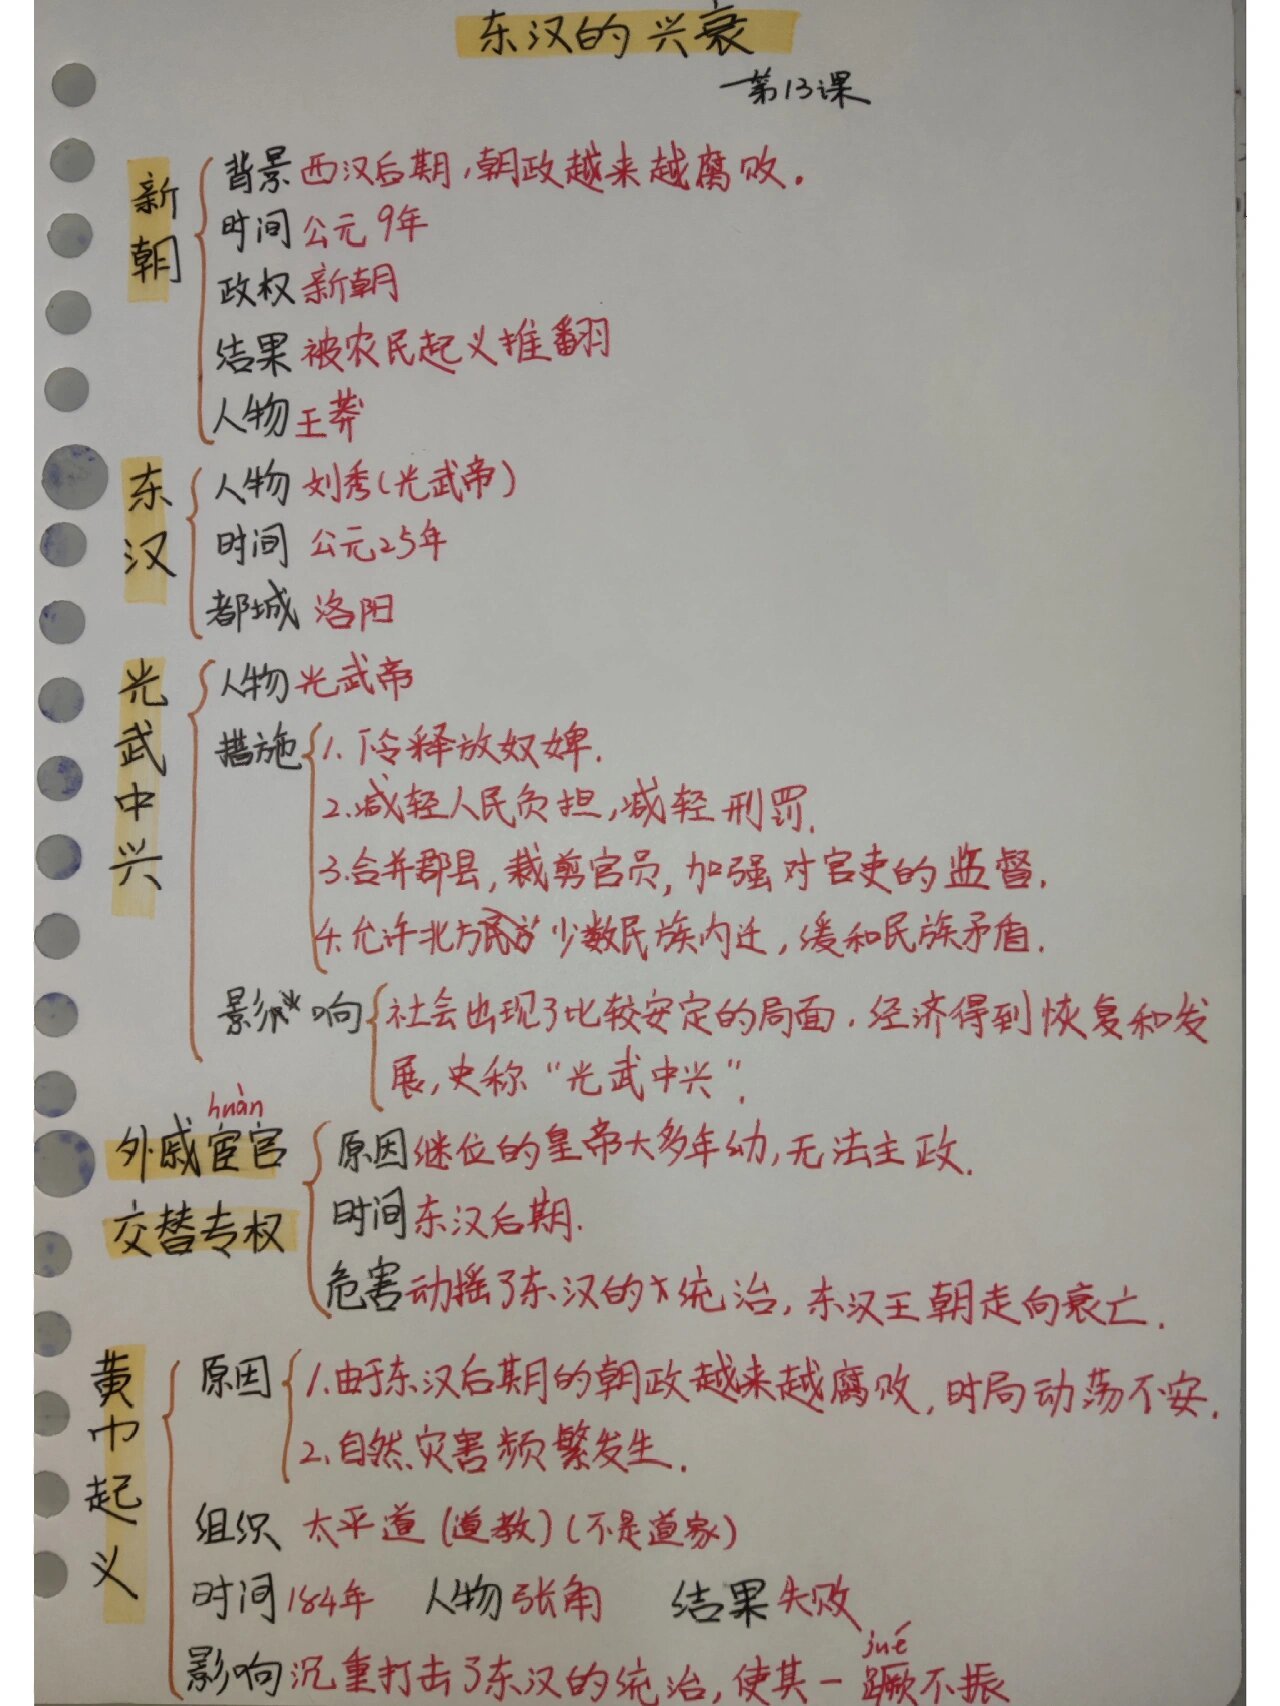 东汉的兴衰
一第13课
新朝
背景 西汉后期,朝政越来越腐败.
时间 公元9年
政权 新朝
结果 被农民起义推翻
人物 王莽
东汉
人物 刘秀(光武帝)
时间 公元25年
都城 洛阳
光武中兴
人物 光武帝
措施
1.下令释放奴婢.
2.减轻人民负担,减轻刑罚.
3.合并郡县,裁剪官员,加强对官吏的监督.
4.允许北方 少数民族内迁,缓和民族矛盾.
影响
社会出现了比较安定的局面.经济得到恢复和发
展,史称“光武中兴”.
huàn
外戚宦官
交替专权
原因 继位的皇帝大多年幼,无法主政.
时间 东汉后期.
危害 动摇了东汉的统治,东汉王朝走向衰亡.
黄巾起义
原因
1.由于东汉后期的朝政越来越腐败,时局动荡不安.
2.自然灾害频繁发生.
组织 太平道(道教)(不是道家)
时间 184年 人物 张角 结果 失败
jué
影响 沉重打击了东汉的统治,使其一蹶不振